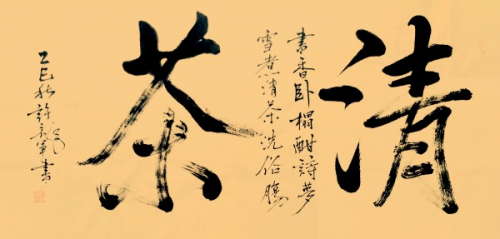 清
書香卧榻酣詩夢
雪煮清茶洗俗腸
茶
乙巳秋許軍書